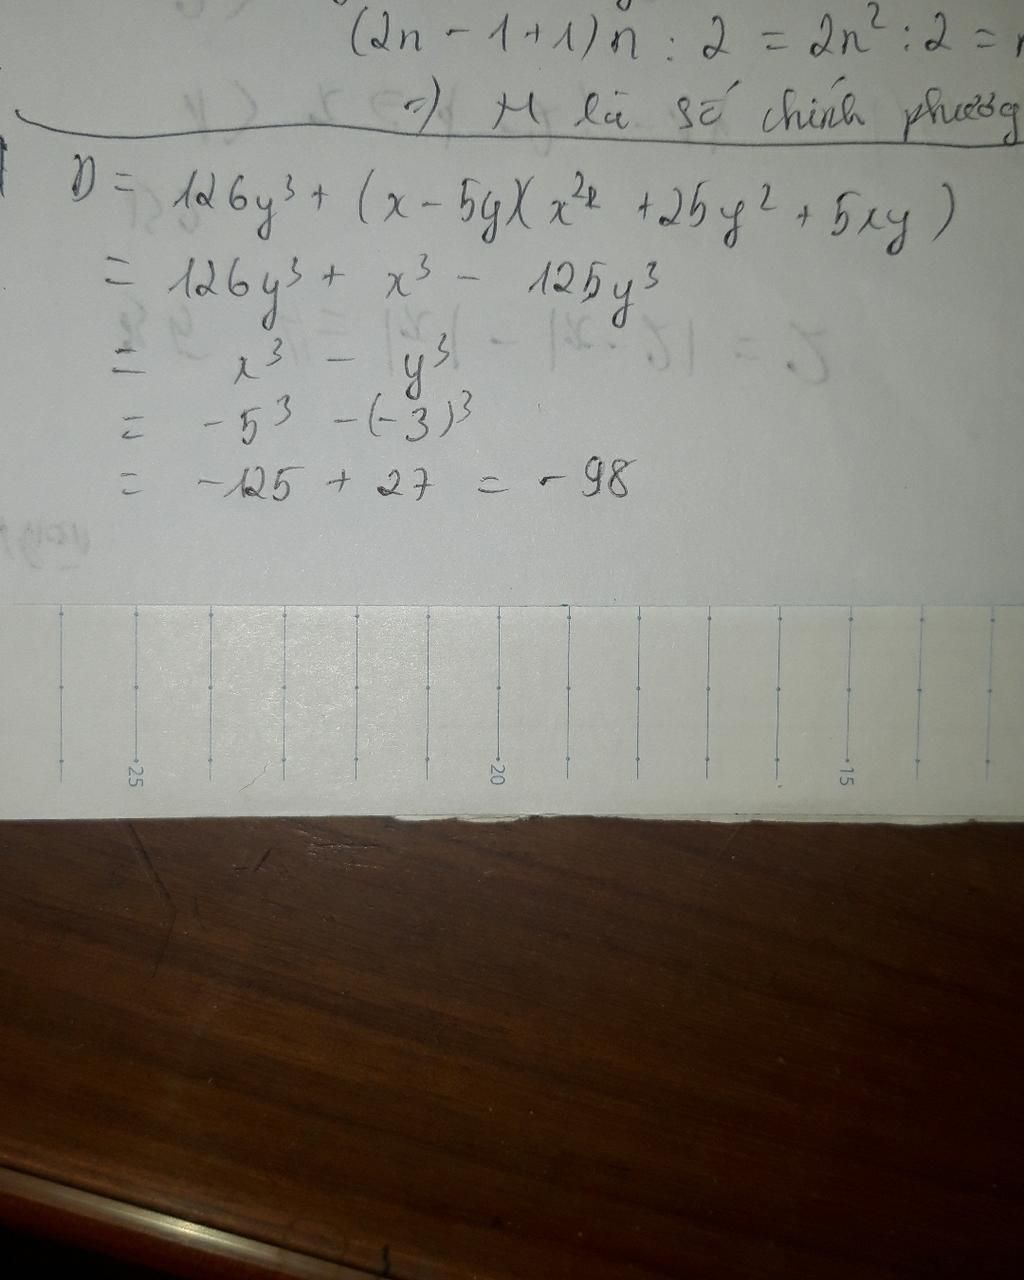 (2n - 1 + 1) n : 2 = 2n² : 2 =
=) M là số chính phương
D = 126y³ + (x - 5y)(x² + 25y² + 5xy)
= 126y³ + x³ - 125y³
= x³ - y³
= -5³ - (-3)³
= -125 + 27 = -98
25 20 15